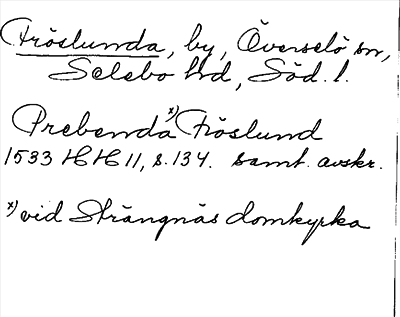 Fröslunda, by, Överselö sn,
Selebo hd, Söd. l.
Prebenda x) Fröslund
1533 HH 11, s. 134. samt. avskr.
x) vid Strängnäs domkyrka